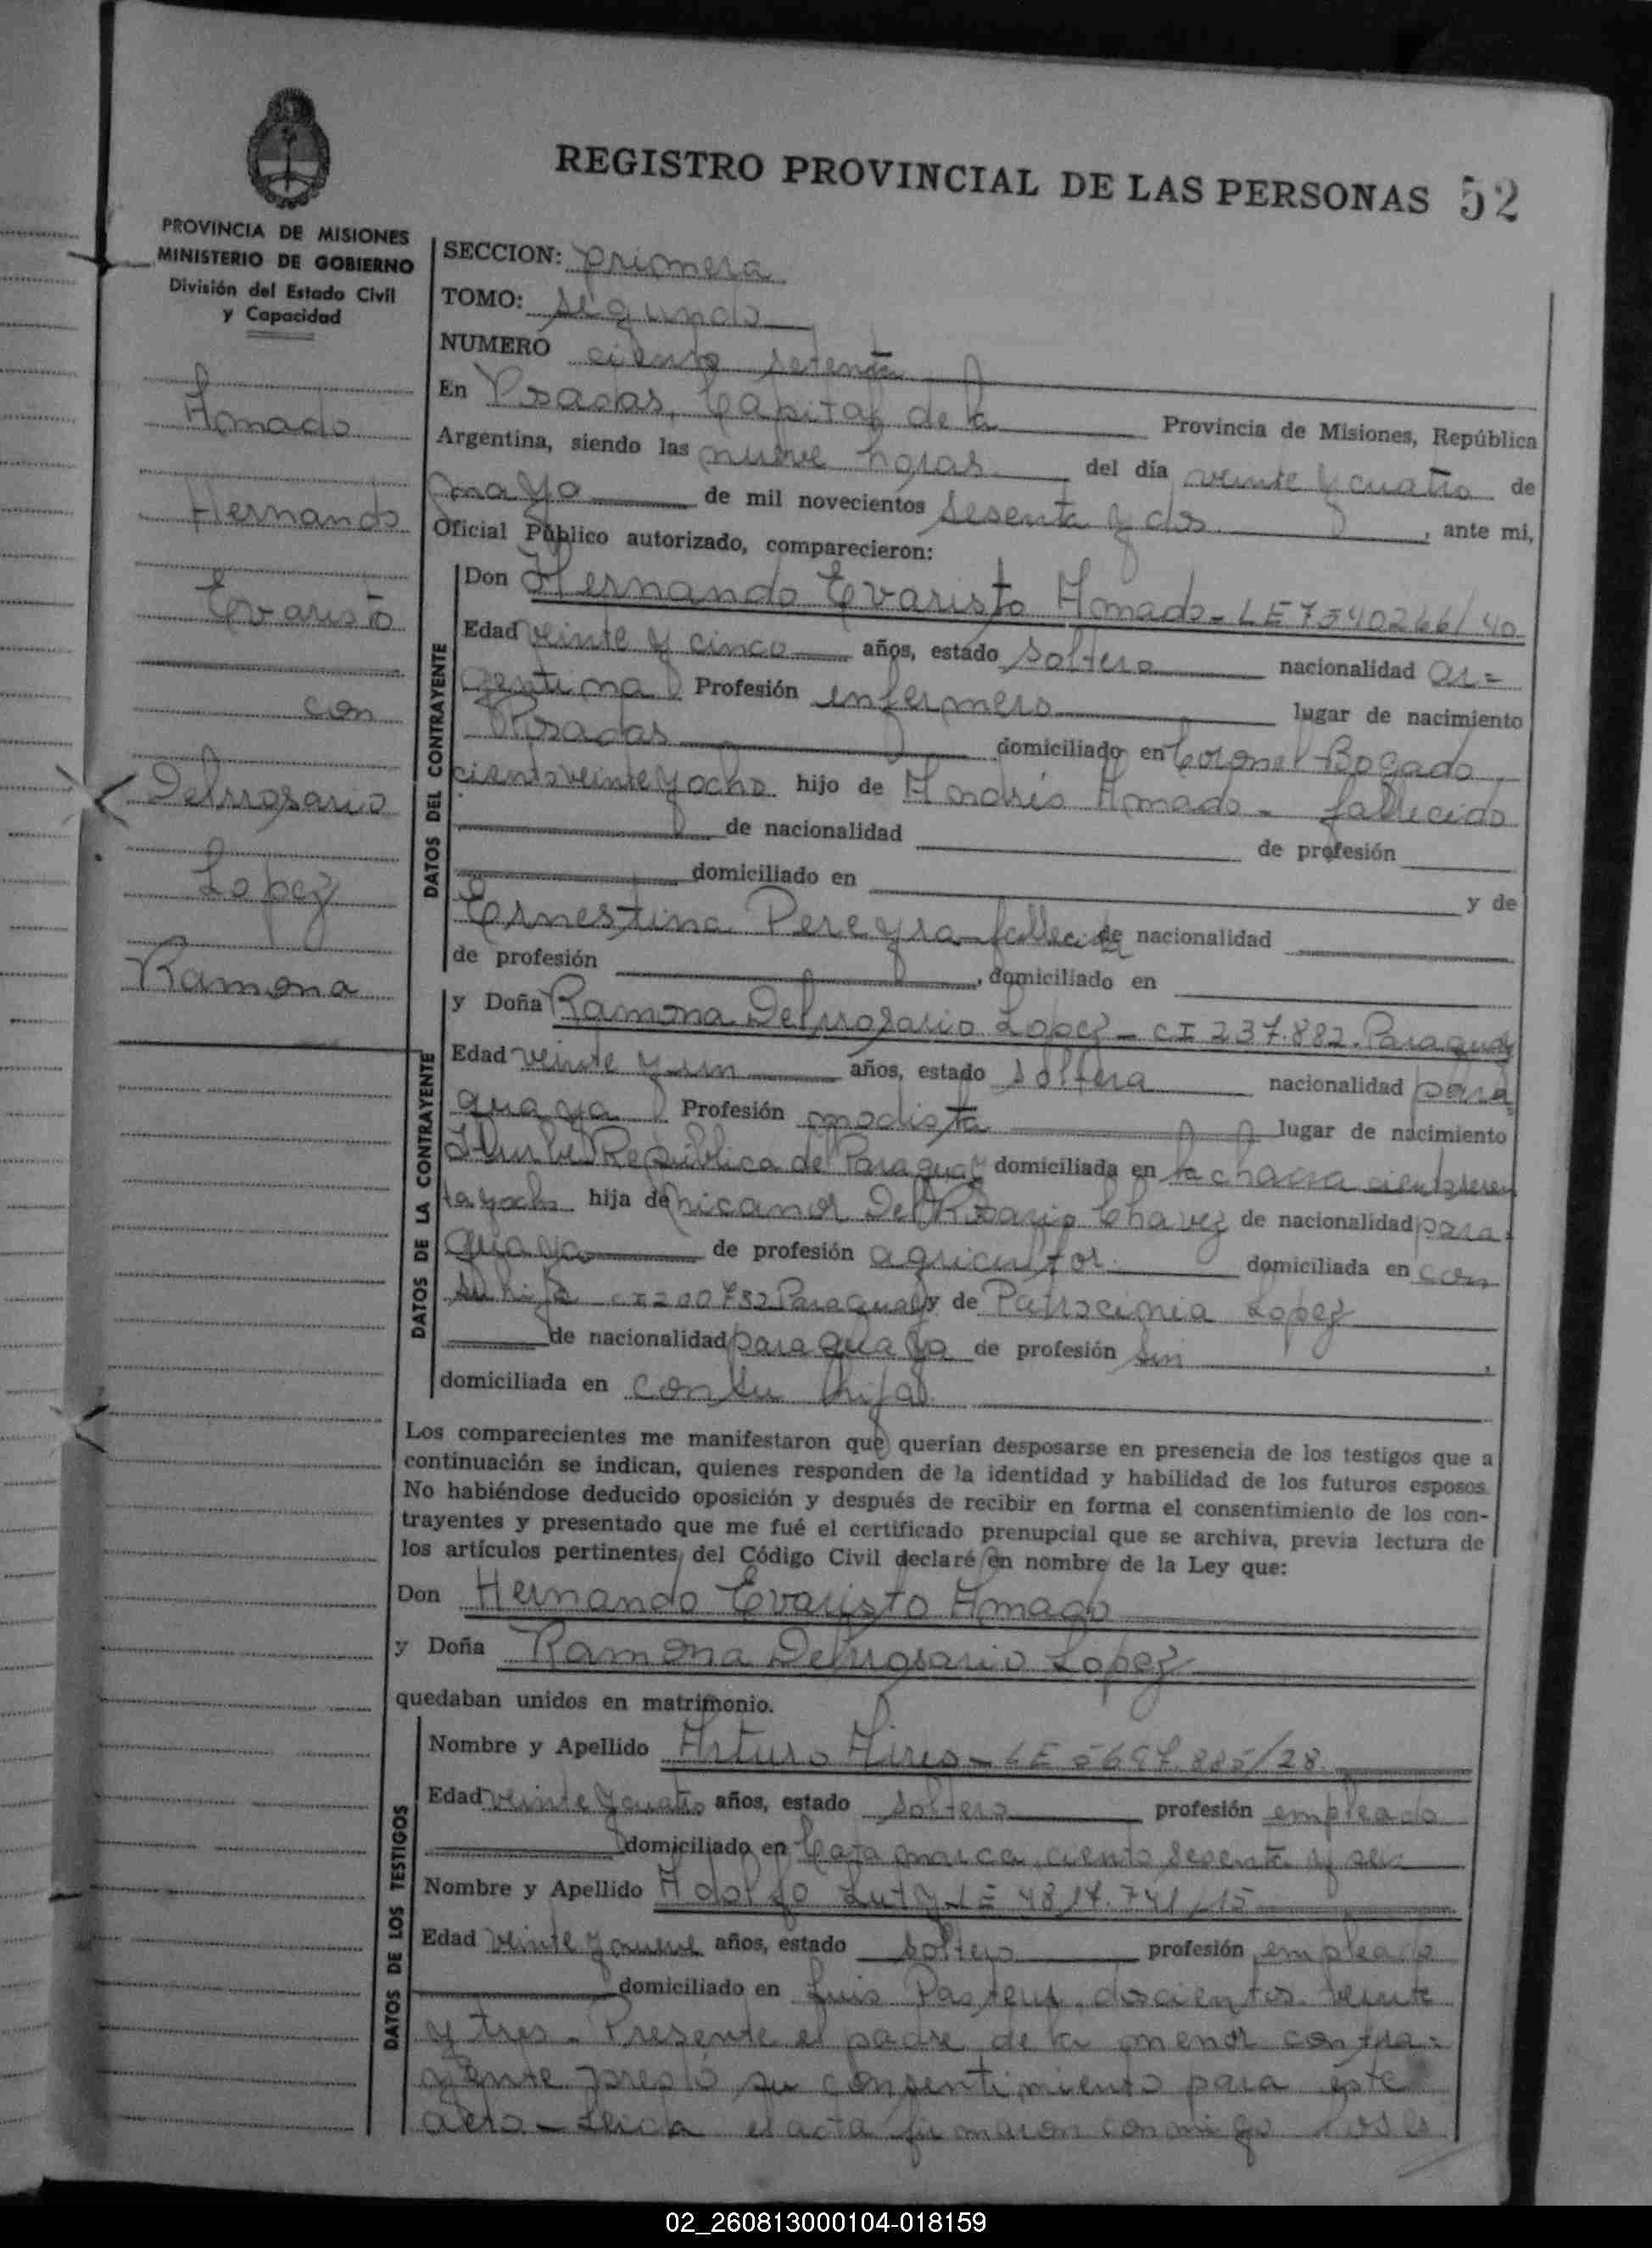 REGISTRO PROVINCIAL DE LAS PERSONAS 52
PROVINCIA DE MISIONES
MINISTERIO DE GOBIERNO
División del Estado Civil
y Capacidad
Amado
Hernando
Evaristo
con
Delrrosario
Lopez
Ramona
SECCION: primera
TOMO: segundo
NUMERO ciento setenta
En Posadas, Capital de la Provincia de Misiones, República
Argentina, siendo las nueve horas del día veinte y cuatro de
mayo de mil novecientos sesenta y dos, ante mi,
Oficial Público autorizado, comparecieron:
DATOS DEL CONTRAYENTE
Don Hernando Evaristo Amado - LE 7540266/40
Edad veinte y cinco años, estado soltero nacionalidad ar=
gentina Profesión enfermero lugar de nacimiento
Posadas domiciliado en Coronel Bogado
ciento veinte y ocho hijo de Andrés Amado - fallecido
de nacionalidad de profesión
domiciliado en y de
Ernestina Pereyra - fallecida de nacionalidad
de profesión , domiciliado en
DATOS DE LA CONTRAYENTE
y Doña Ramona Delrrosario Lopez - CI 237.882. Paraguay
Edad veinte y un años, estado soltera nacionalidad para
guaya Profesión modista lugar de nacimiento
República del Paraguay domiciliada en la chacra ciento
ta y ocho hija de Nicanor Del Rosario Chavez de nacionalidad para
guaya de profesión agricultor domiciliada en con
su hija CI 200752 Paraguay y de Patrocinia Lopez
de nacionalidad paraguaya de profesión sin ,
domiciliada en con su hija
Los comparecientes me manifestaron que querían desposarse en presencia de los testigos que a
continuación se indican, quienes responden de la identidad y habilidad de los futuros esposos.
No habiéndose deducido oposición y después de recibir en forma el consentimiento de los con-
trayentes y presentado que me fué el certificado prenupcial que se archiva, previa lectura de
los artículos pertinentes del Código Civil declaré en nombre de la Ley que:
Don Hernando Evaristo Amado
y Doña Ramona Delrrosario Lopez
quedaban unidos en matrimonio.
DATOS DE LOS TESTIGOS
Nombre y Apellido Arturo Aires - LE 5697.885/28
Edad veinte y cuatro años, estado soltero profesión empleado
domiciliado en Catamarca ciento sesenta y seis
Nombre y Apellido Adolfo LE 4817.741/15
Edad veinte y nueve años, estado soltero profesión empleado
domiciliado en Luis Pasteur doscientos veinte
y tres. Presente el padre de la menor contra=
yente prestó su consentimiento para este
acto - Leida el acta firmaron conmigo los
02_260813000104-018159